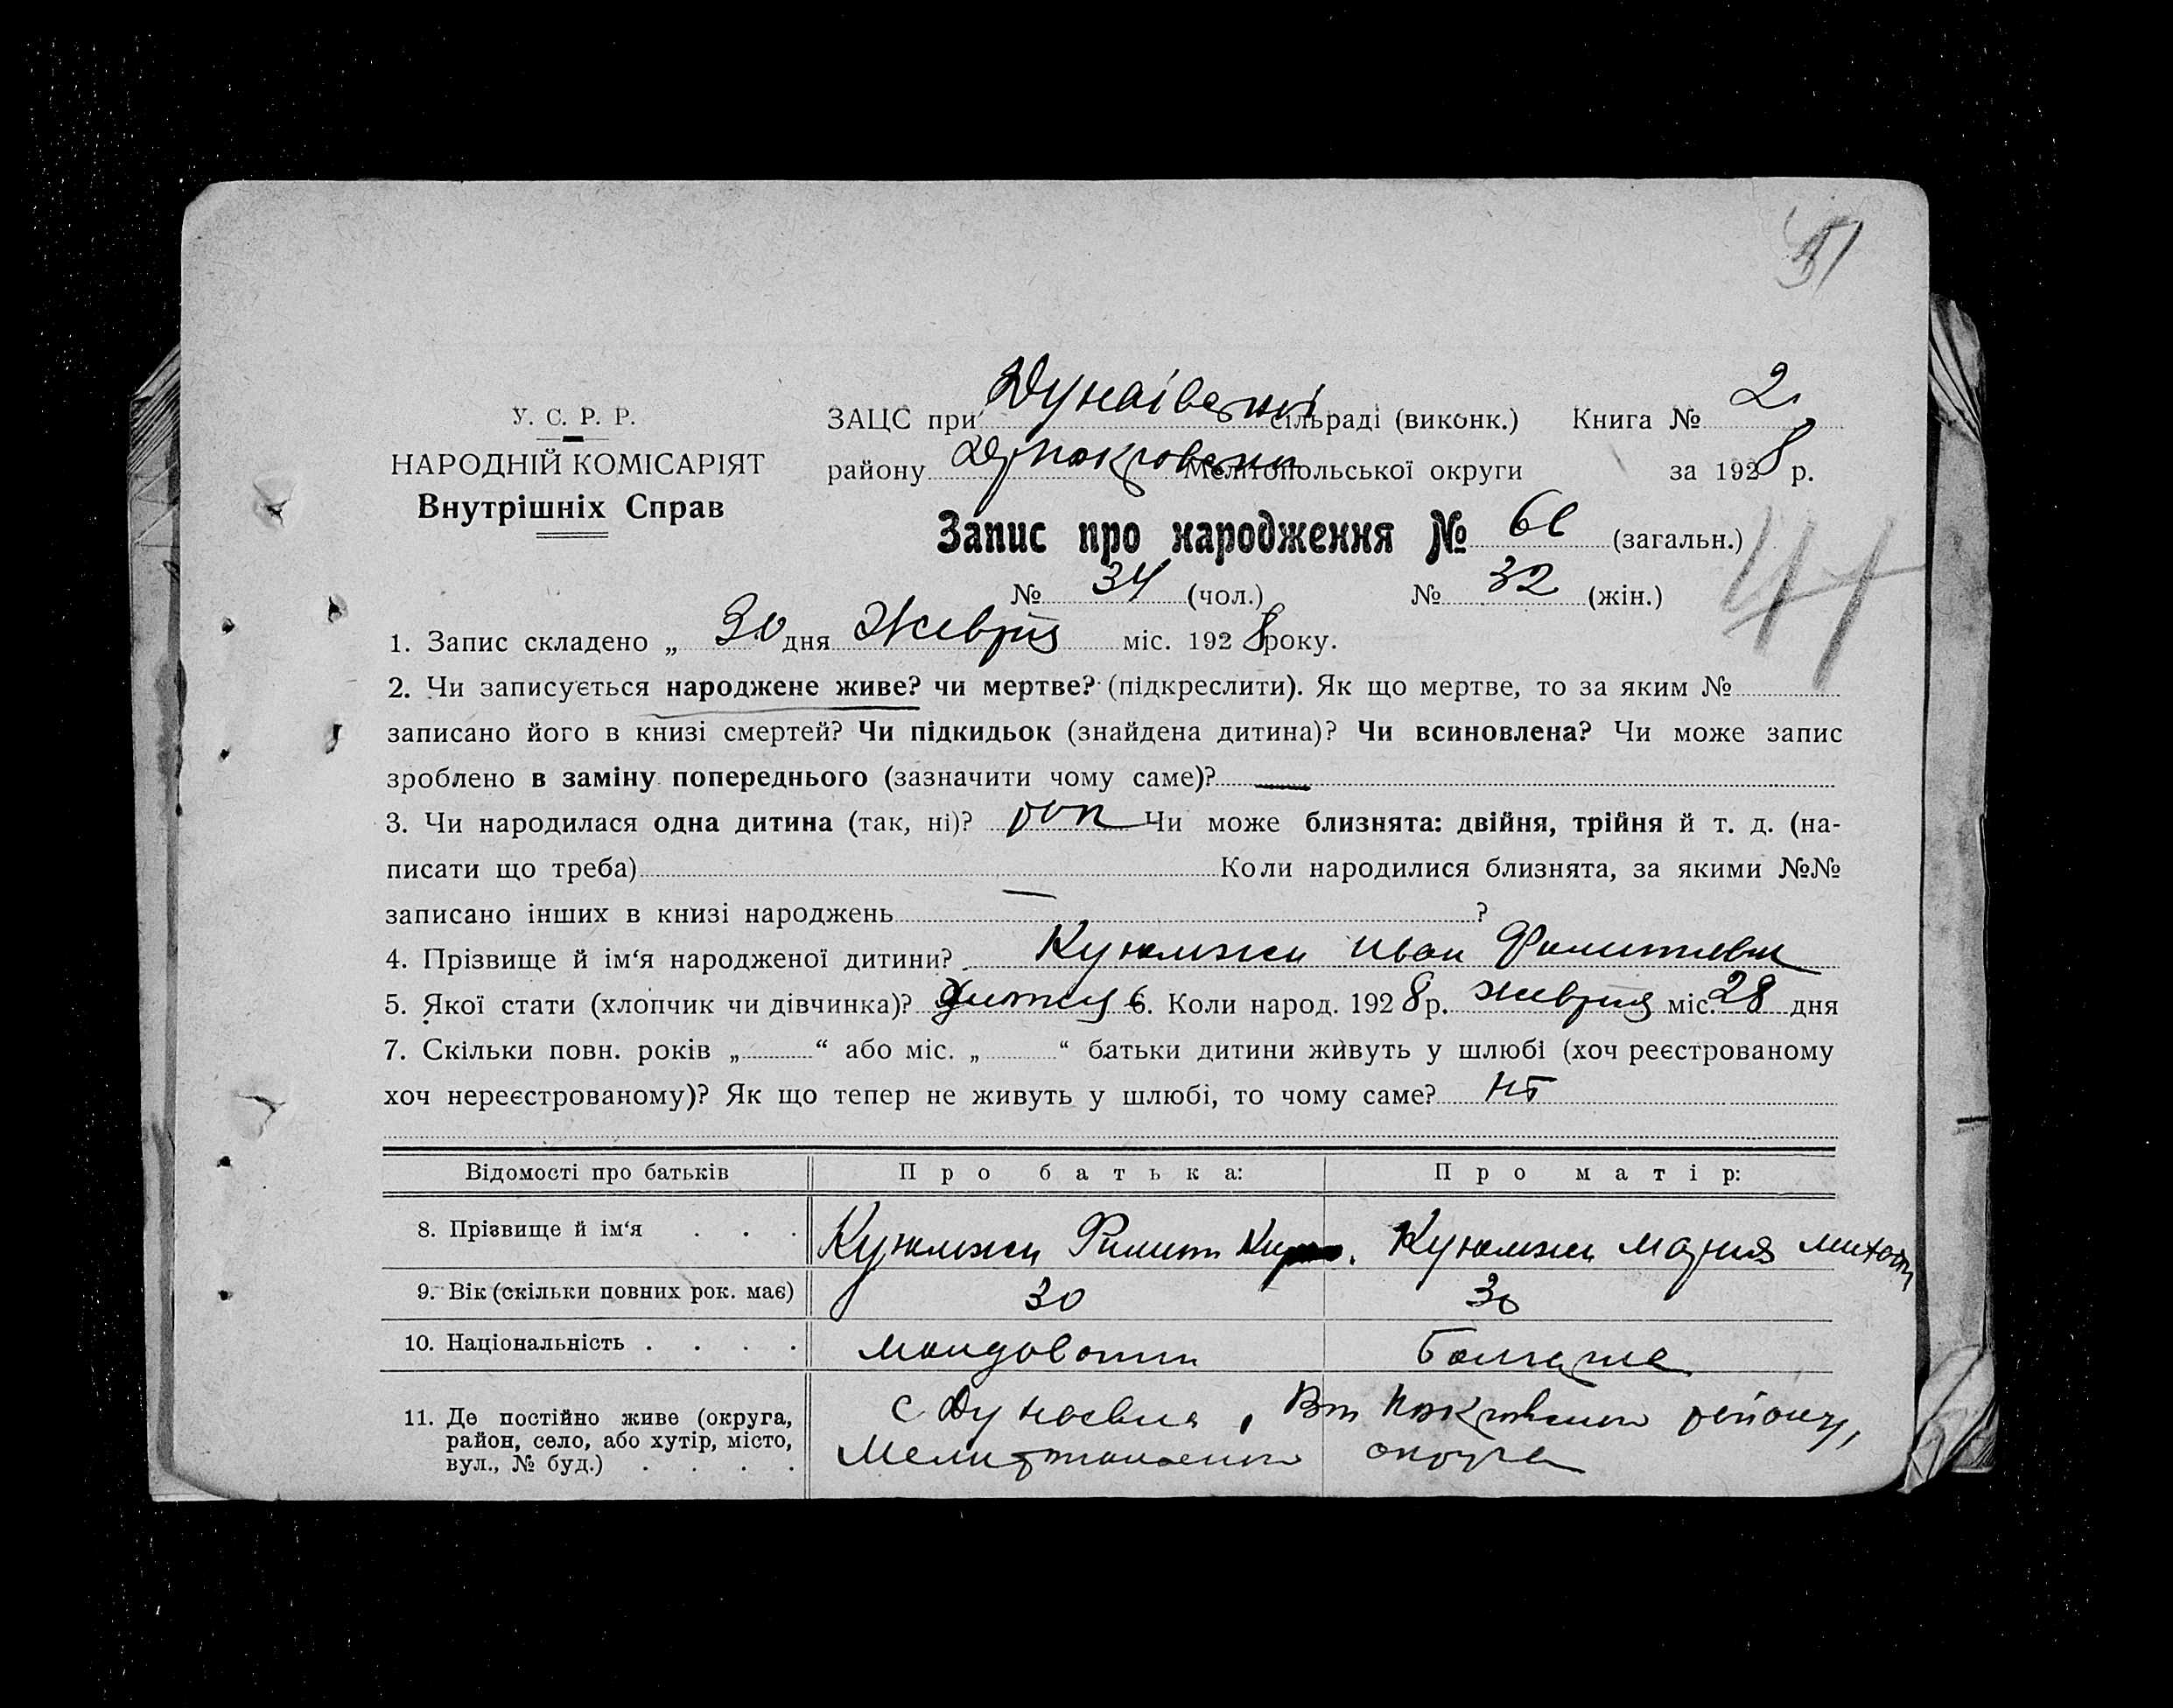 У. С. Р. Р.
НАРОДНІЙ КОМІСАРІЯТ
Внутрішніх Справ
ЗАЦС при Дунаівській сільраді (виконк.) Книга № 2
району Мелітопольської округи за 1928 р.
Запис про народження № (загальн.)
№ 34 (чол.) № 32 (жін.)
44
1. Запис складено „ 30 дня міс. 1928 року.
2. Чи записується народжене живе? чи мертве? (підкреслити). Як що мертве, то за яким №
записано його в книзі смертей? Чи підкидьок (знайдена дитина)? Чи всиновлена? Чи може запис
зроблено в заміну попереднього (зазначити чому саме)? —
3. Чи народилася одна дитина (так, ні)? Чи може близнята: двійня, трійня й т. д. (на-
писати що треба) Коли народилися близнята, за якими №№
записано інших в книзі народжень — ?
4. Прізвище й ім‘я народженої дитини? Куюмжи Иван
5. Якої стати (хлопчик чи дівчинка)? 6. Коли народ. 1928 р. міс. 28 дня
7. Скільки повн. років „ “ або міс. „ “ батьки дитини живуть у шлюбі (хоч реєстрованому
хоч нереєстрованому)? Як що тепер не живуть у шлюбі, то чому саме?
Відомості про батьків Про батька: Про матір:
8. Прізвище й ім‘я . . . Куюмжи Филип Куюмжи Мария
9. Вік (скільки повних рок. має) 30 30
10. Національність . . . .
11. Де постійно живе (округа,
район, село, або хутір, місто,
вул., № буд.) . . . .
с Дунаевка, району,
округа